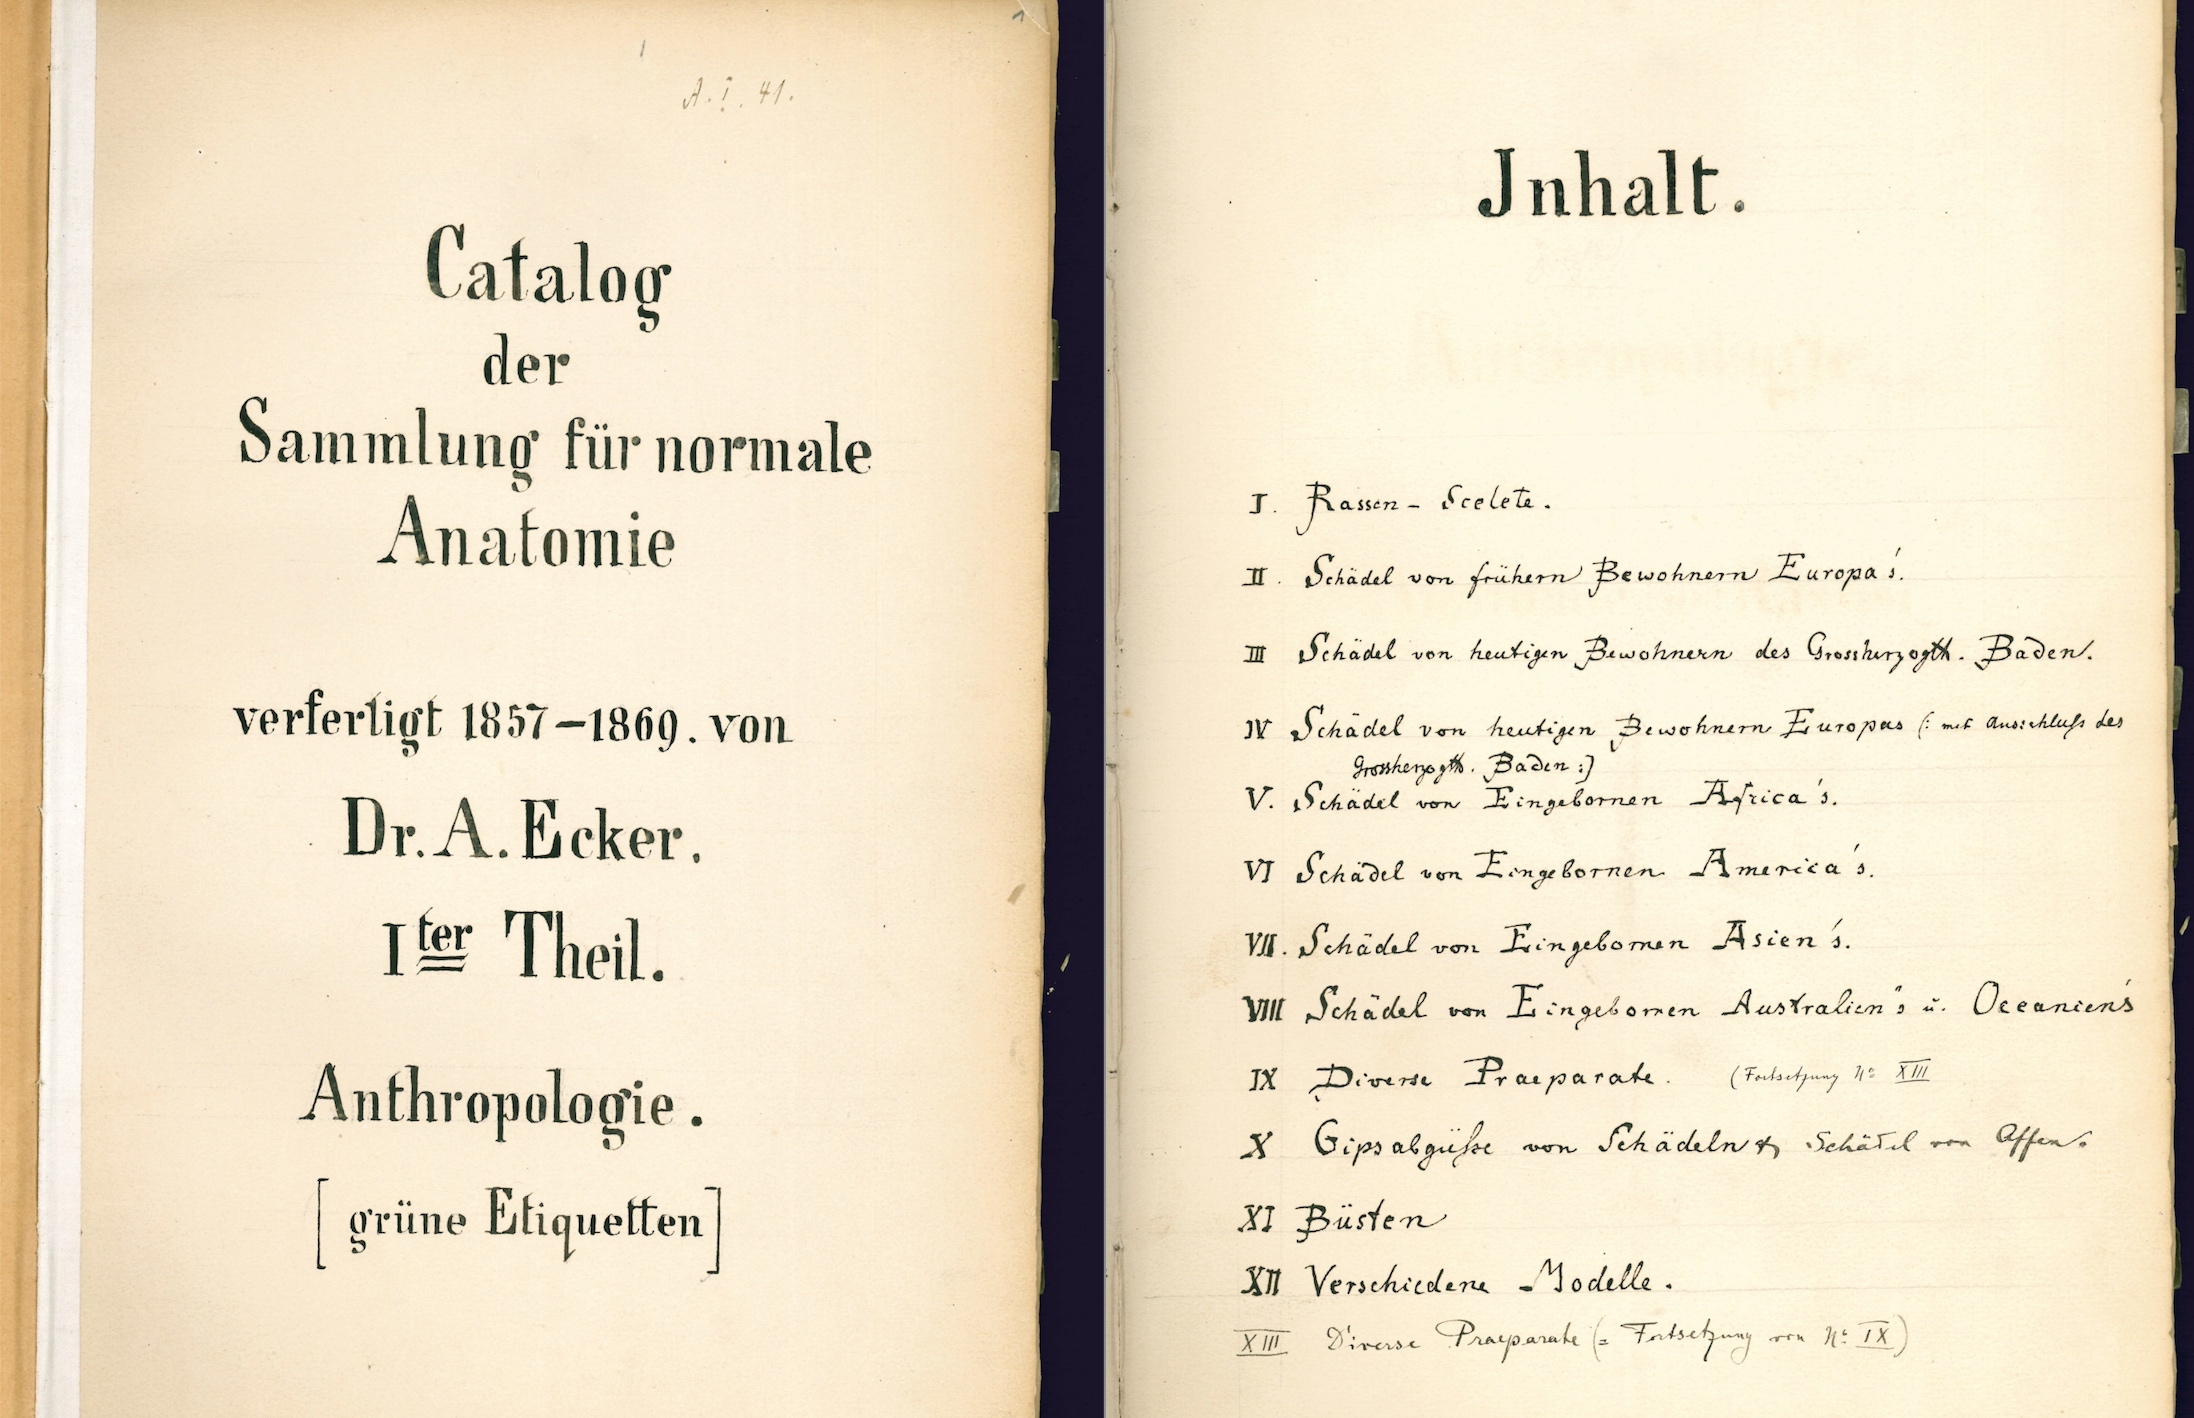 A. I. 41.
Catalog
der
Sammlung für normale
Anatomie
verfertigt 1857–1869. von
Dr. A. Ecker.
Iter Theil.
Anthropologie.
[grüne Etiquetten]
Jnhalt.
I. Rassen - Scelete.
II. Schädel von frühern Bewohnern Europa's.
III Schädel von heutigen Bewohnern des Grossherzogth. Baden.
IV Schädel von heutigen Bewohnern Europas (: mit Ausschluss des
Grossherzogth. Baden :)
V. Schädel von Eingebornen Africa's.
VI Schädel von Eingebornen America's.
VII. Schädel von Eingebornen Asien's.
VIII Schädel von Eingebornen Australien's u. Oceanien's
IX Diverse Praeparate. (Fortsetzung No XIII
X Gipsabgüsse von Schädeln & Schädel von Affen.
XI Büsten
XII Verschiedene Modelle.
XIII Diverse Praeparate (= Fortsetzung von No IX)